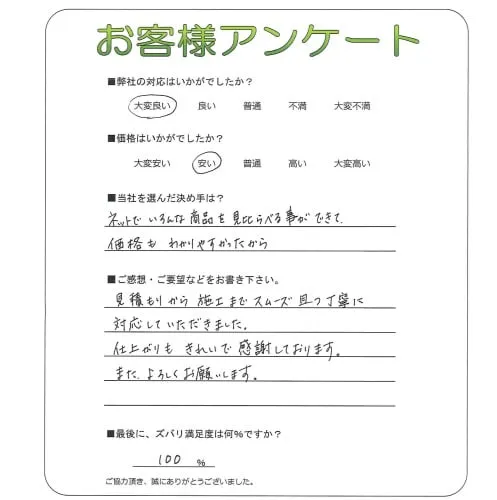 お客様アンケート
■弊社の対応はいかがでしたか？
大変良い 良い 普通 不満 大変不満
■価格はいかがでしたか？
大変安い 安い 普通 高い 大変高い
■当社を選んだ決め手は？
ネットで いろんな商品を見比らべる事ができて、
価格も わかりやすかったから
■ご感想・ご要望などをお書き下さい。
見積もりから 施工まで スムーズ 且つ丁寧に
対応していただきました。
仕上がりも きれいで 感謝しております。
また、よろしくお願いします。
■最後に、ズバリ満足度は何％ですか？
100 ％
ご協力頂き、誠にありがとうございました。